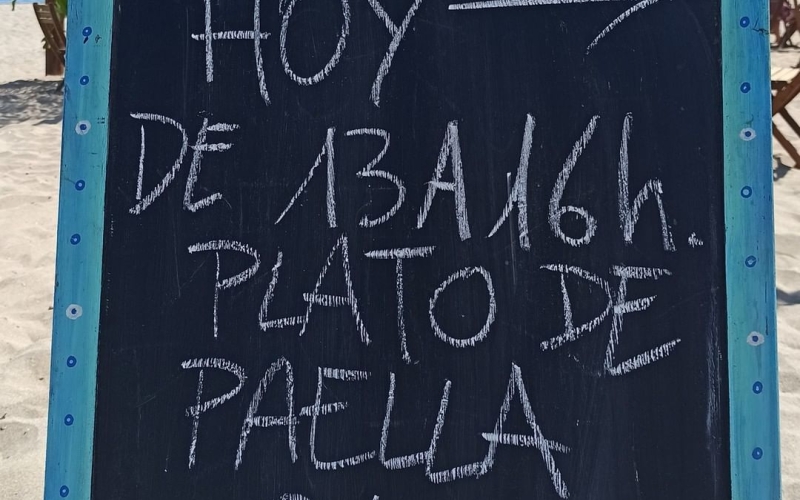 HOY
DE 13 A 16h.
PLATO DE
PAELLA